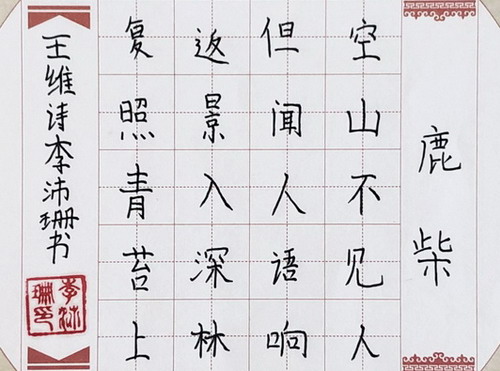 鹿柴
空山不见人
但闻人语响
返景入深林
复照青苔上
王维诗李沛珊书
李沛珊印